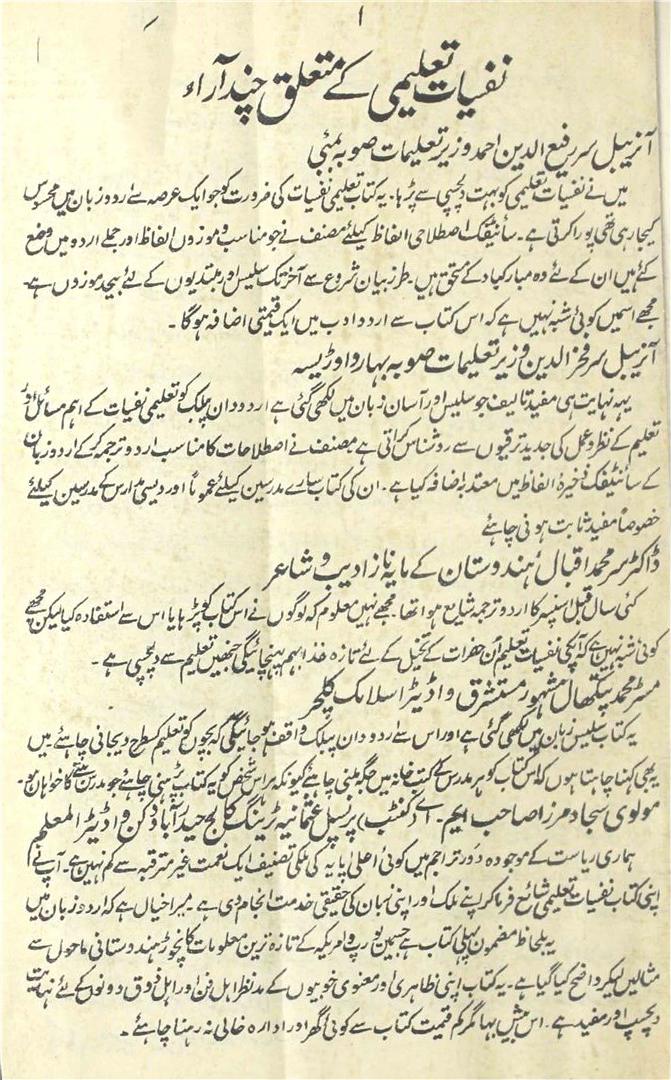 ۱
نفسیات تعلیمی کے متعلق چند آراء
آنریبل سر رفیع الدین احمد وزیر تعلیمات صوبہ بمبئی
میں نے نفسیات تعلیمی کو بہت دلچسپی سے پڑہا۔ یہ کتاب تعلیمی نفسیات کی ضرورت کو جو ایک عرصہ سے اردو زبان میں محسوس
کیجا رہی تھی پورا کرتی ہے۔ سائنٹیفک اصطلاحی الفاظ کیلئے مصنف نے جو مناسب و موزوں الفاظ اور جملے اردو میں وضع
کئے ہیں ان کے لئے وہ مبارکباد کے مستحق ہیں۔ طرز بیان شروع سے آخر تک سلیس اور مبتدیوں کے لئے بیحد موزوں ہے۔
مجھے اسمیں کوئی شبہ نہیں ہے کہ اس کتاب سے اردو ادب میں ایک قیمتی اضافہ ہوگا۔
آنریبل سر فخر الدین وزیر تعلیمات صوبہ بہار و اوڑیسہ
یہہ نہایت ہی مفید تالیف جو سلیس اور آسان زبان میں لکھی گئی ہے اردو دان پبلک کو تعلیمی نفسیات کے اہم مسائل اور
تعلیم کے نظر و عمل کی جدید ترقیوں سے روشناس کراتی ہے مصنف نے اصطلاحات کا مناسب اردو ترجمہ کرکے اردو زبان
کے سائنٹفک ذخیرۂ الفاظ میں معتدبہ اضافہ کیا ہے۔ ان کی کتاب سارے مدرسین کیلئے عموماً اور دیسی مدارس کے مدرسین کیلئے
خصوصاً مفید ثابت ہونی چاہئے
ڈاکٹر سر محمد اقبال ہندوستان کے مایہ ناز ادیب و شاعر
کئی سال قبل اسپنسر کا اردو ترجمہ شایع ہوا تھا۔ مجھے نہیں معلوم کہ لوگوں نے اس کتاب کو پڑہا یا اس سے استفادہ کیا لیکن مجھے
کوئی شبہ نہیں ہے کہ آپکی نفسیات تعلیم ان حضرات کے تخیل کے لئے تازہ غذا بہم پہنچائیگی جنھیں تعلیم سے دلچسپی ہے۔
مسٹر محمد پکتھال مشہور مستشرق و اڈیٹر اسلامک کلچر
یہ کتاب سلیس زبان میں لکھی گئی ہے اور اس سے اردو دان پبلک واقف ہو جائیگی کہ بچوں کو تعلیم کسطرح دیجانی چاہئے۔ میں
یہی کہنا چاہتا ہوں کہ اس کتاب کو ہر مدرسہ کے کتب خانہ میں جگہ ملنی چاہئے کیونکہ ہر اس شخص کو یہ کتاب پڑہنی چاہئے جو مدرس بننے کا خواہاں ہو۔
مولوی سجاد مرزا صاحب ایم۔ اے (کنٹب) پرنسپل عثمانیہ ٹریننگ کالج حیدرآباد دکن و اڈیٹر المعلم
ہماری ریاست کے موجودہ دور تراجم میں کوئی اعلیٰ پایہ کی ملکی تصنیف ایک نعمت غیر مترقبہ سے کم نہیں ہے۔ آپ نے
اپنی کتاب نفسیات تعلیمی شائع فرما کر اپنے ملک اور اپنی زبان کی حقیقی خدمت انجام دی ہے۔ میرا خیال ہے کہ اردو زبان میں
یہ بلحاظ مضمون پہلی کتاب ہے جسمیں یورپ و امریکہ کے تازہ ترین معلومات کا نچوڑ ہندوستانی ماحول سے
مثالیں لیکر واضح کیا گیا ہے۔ یہ کتاب اپنی ظاہری اور معنوی خوبیوں کے مدنظر اہل فن اور اہل ذوق دونوں کے لئے نہایت
دلچسپ اور مفید ہے۔ اس بیش بہا مگر کم قیمت کتاب سے کوئی گھر اور ادارہ خالی نہ رہنا چاہئے۔